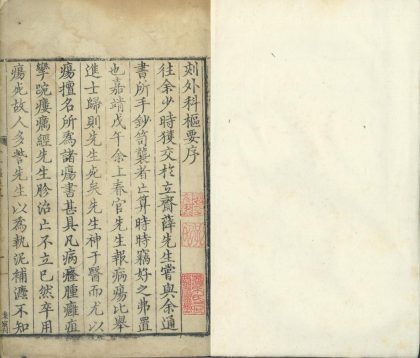 刻外科樞要序
往余少時獲交於立齋薛先生嘗與余通
書所手鈔笥蘘者亡算時時竊好之弗置
也嘉靖戊午余上春官先生報病瘍比舉
進士歸則先生死矣先生神于醫而尤以
瘍擅名所為諸瘍書甚具凡病癰腫癰疽
攣踠瘻癘經先生胗治亡不立已然卒用
瘍死故人多訾先生以為執泥補瀉不知